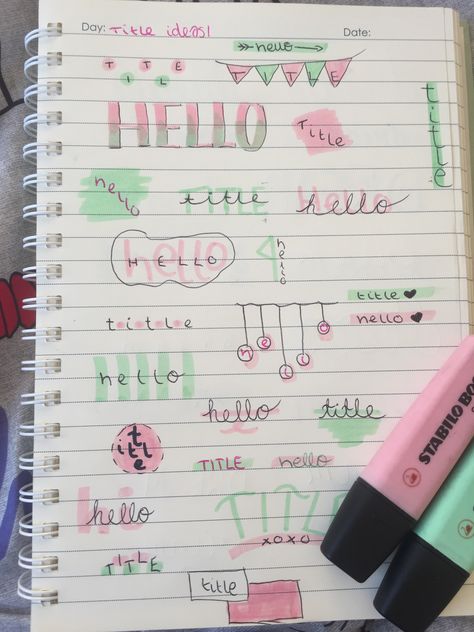 Day: Title ideas! Date:
hello
TITLE
TITLE
HELLO
Title
title
hello
TITLE
title
hello
hello
hello
HELLO
hello
title
hello
title ♥
hello ♥
hello
hello
title
title
TITLE
hello
hi
hello
TITLE
xoxo
TITLE
title
STABILO BO